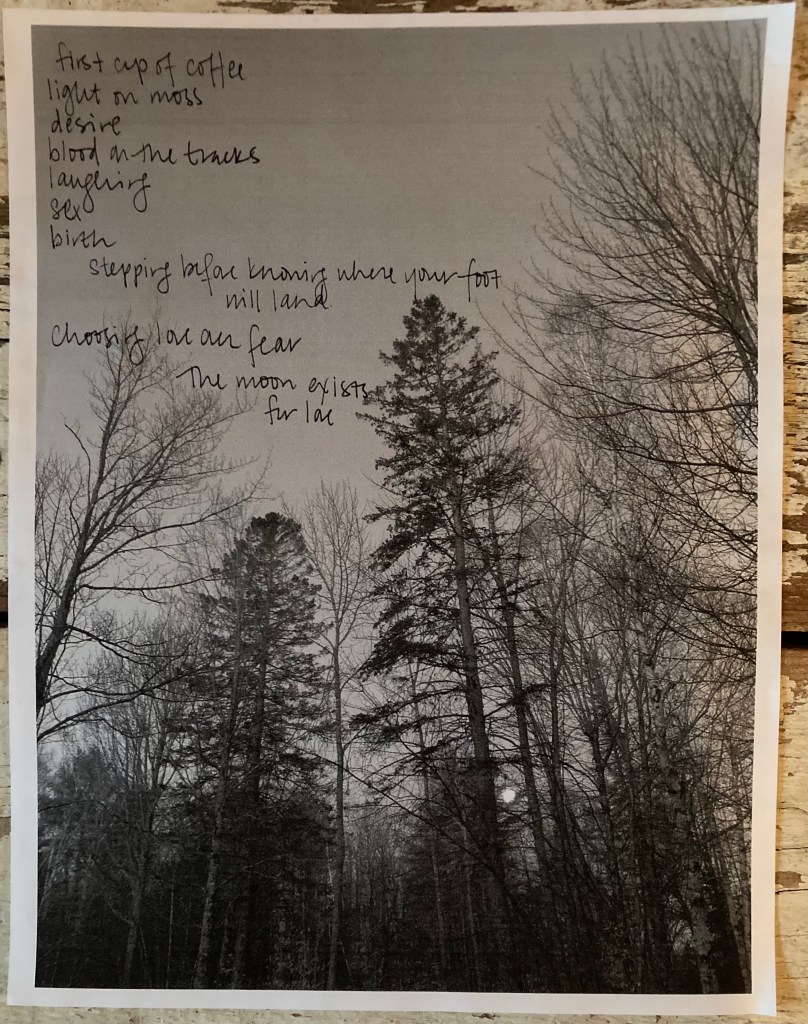 first cup of coffee
light on moss
desire
blood on the tracks
laughing
sex
birth
stepping before knowing where your foot
will land
choosing love over fear
The moon exists
for love